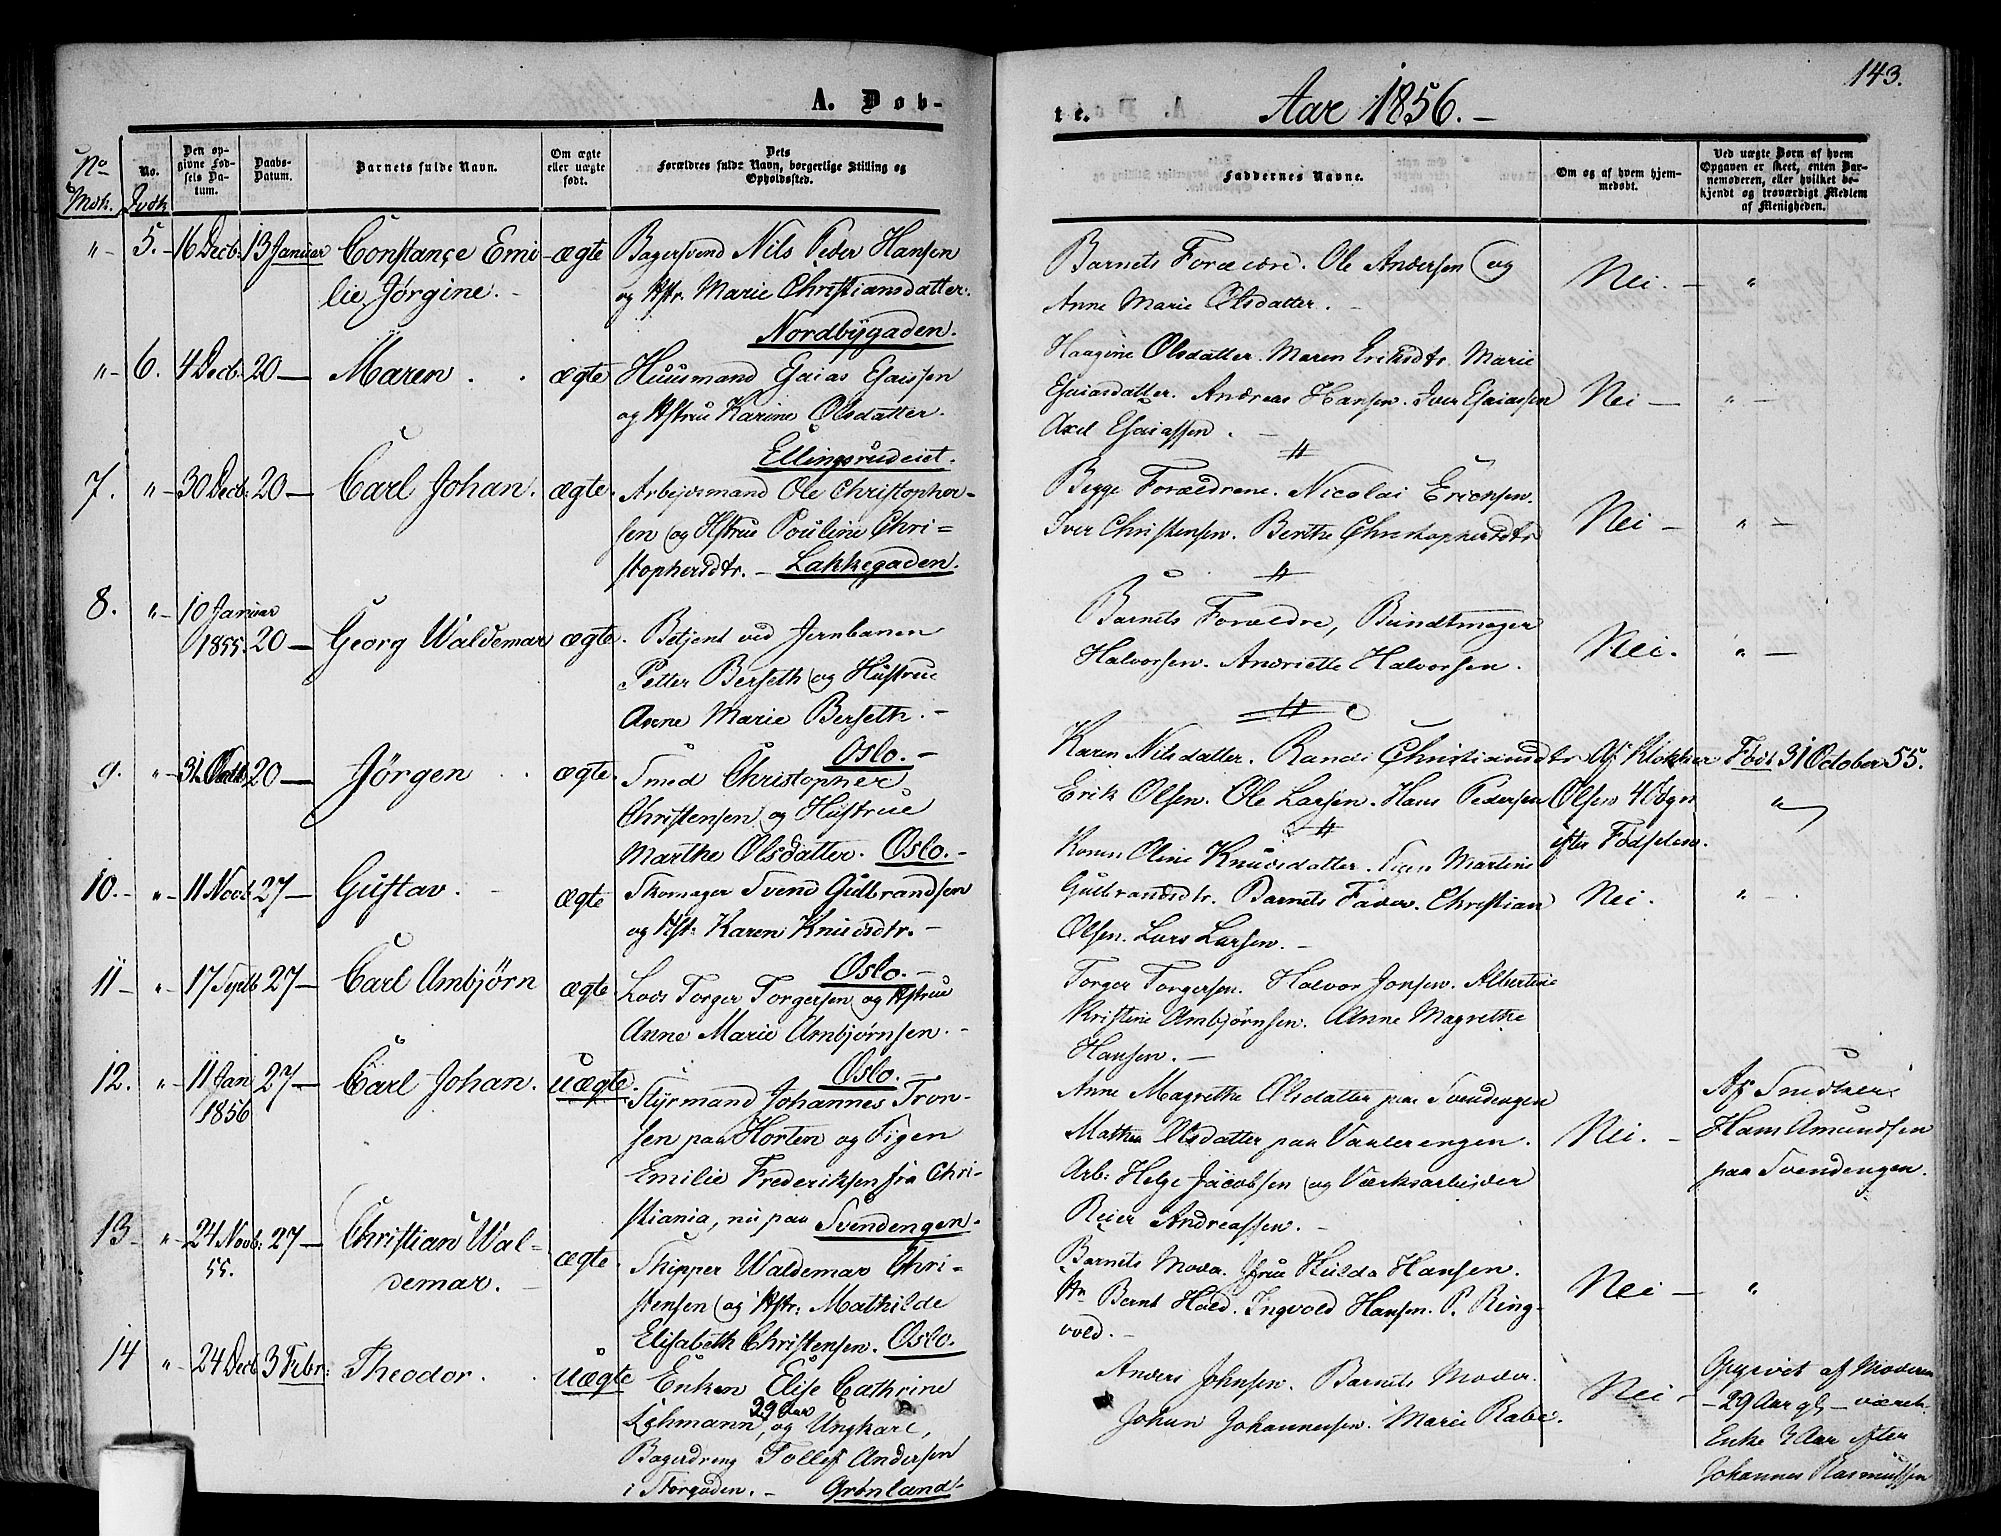 A. Døb-
No Mdk.
No. Qvdk
Den op-
givne Fød-
sels Da-
tum.
Daabs-
Datum.
Barnets fulde Navn.
Om ægte
eller uægte
født.
Dets
Forældres fulde Navn, borgerlige Stilling og
Opholdssted.
" - 5. - 16 Decb: 13 Januar Constançe Emi- ægte Bagersvend Nils Peder Hansen
lie Jørgine. - og Hstr. Marie Christiansdatter.
Nordbygaden.
" - 6. 4 Decb: 20 — Maren . . ægte Huusmand Esaias Esaissen
og Hstru Karine Olsdatter.
Ellingsrudeiet.
7. " - 30 Decb: 20 — Carl Johan. ægte. Arbejdsmand Ole Christopher-
sen og Hstrue Pouline Chri-
stophersdtr. - Lakkegaden.
8. " - 10 Januar
1855. 20 — Georg Waldemar ægte. Betjent ved Jernbanen
Petter Berseth og Hustrue
Anne Marie Berseth. -
Oslo. -
9. " - 31. 20 — Jörgen . . ægte. Smed Christopher
Christensen og Hustrue
Marthe Olsdatter. Oslo. -
10. - " - 11 Novb 27 — Gustav. - ægte Skomager Svend Gulbrandsen
og Hst: Karen Knudsdtr. -
Oslo. -
11 - " - 17 Septb 27 — Carl Ambjörn ægte. Lods Torger Torgersen og Hstrue
Anne Marie Ambjørnsen. -
Oslo. -
12. " - 11 Jan
1856 27 — Carl Johan. uægte. Styrmand Johannes Tron-
sen paa Horten og Pigen
Emilie Frederiksen fra Chri-
stiania, nu paa Svendengen. -
13 - " - 24 Novb: 27 — Christian Wal-
55. demar. - ægte. Skipper Waldemar Chri-
stensen og Hstr: Mathilde
Elisabeth Christensen. Oslo.
14 " - 24 Decb 3 Febr: Theodor. . uægte Enken Elise Cathrine
29 Aar
Lehmann, og Ungkarl,
Bagerdreng Tollef Andersen
i Storgaden. - Grønland. -
143.
te. Aar 1856. -
Faddernes Navne.
Om og af hvem hjem-
medøbt.
Ved uægte Børn af hvem
Opgaven er skeet, enten Bar-
nemoderen, eller hvilket be-
kjendt og troværdigt Medlem
af Menigheden.
Barnets Forældre. Ole Andersen og
Anne Marie Olsdatter. - Nei. - "
Haagine Olsdatter. Maren Eriksdtr. Marie
Esaiasdatter. Andreas Hansen. Iver Esaiassen Nei — " -
Axel Esaiassen. -
Begge Forældrene. Nicolai Ericksen.
Iver Christensen. Berthe Christophersdtr Nei — " -
Barnets Forældre, Bundtmager
Halvorsen. Andriette Halvorsen. Nei. " -
Karen Nilsdatter. Randi Christiansdtr Af Klokker Født 31 October 55.
Erik Olsen. Ole Larsen. Hans Pedersen Olsen 4 Døgn "
efter Fødselen.
Karen Oline Knudsdatter. Martine
Gulbrandsdtr. Barnets Fader. Christian Nei. " -
Olsen. Lars Larsen. -
Torger Torgersen. Halvor Jonsen. Albertine
Kristine Ambjørnsen. Anne Magrethe
Hansen. -
Anne Magrethe Olsdatter paa Svendengen Af Snedker
Mathea Olsdatter paa Vaalerengen. Nei. - Hans Amundsen
Arb: Helge Jacobsen og Værksarbeider paa Svendengen.
Reier Andreassen. -
Barnets Moder. Frue Hulda Hansen.
Hr. Bernt Hald. Ingvold Hansen. P. Ring- Nei — "
vold. -
Anders Johnsen. Barnets Moder. Nei - Opgivet af Moderen
Johan Johannessen. Marie Rabe. - 29 Aar gl - været
Enke 3 Aar efter
Johannes Rasmussen